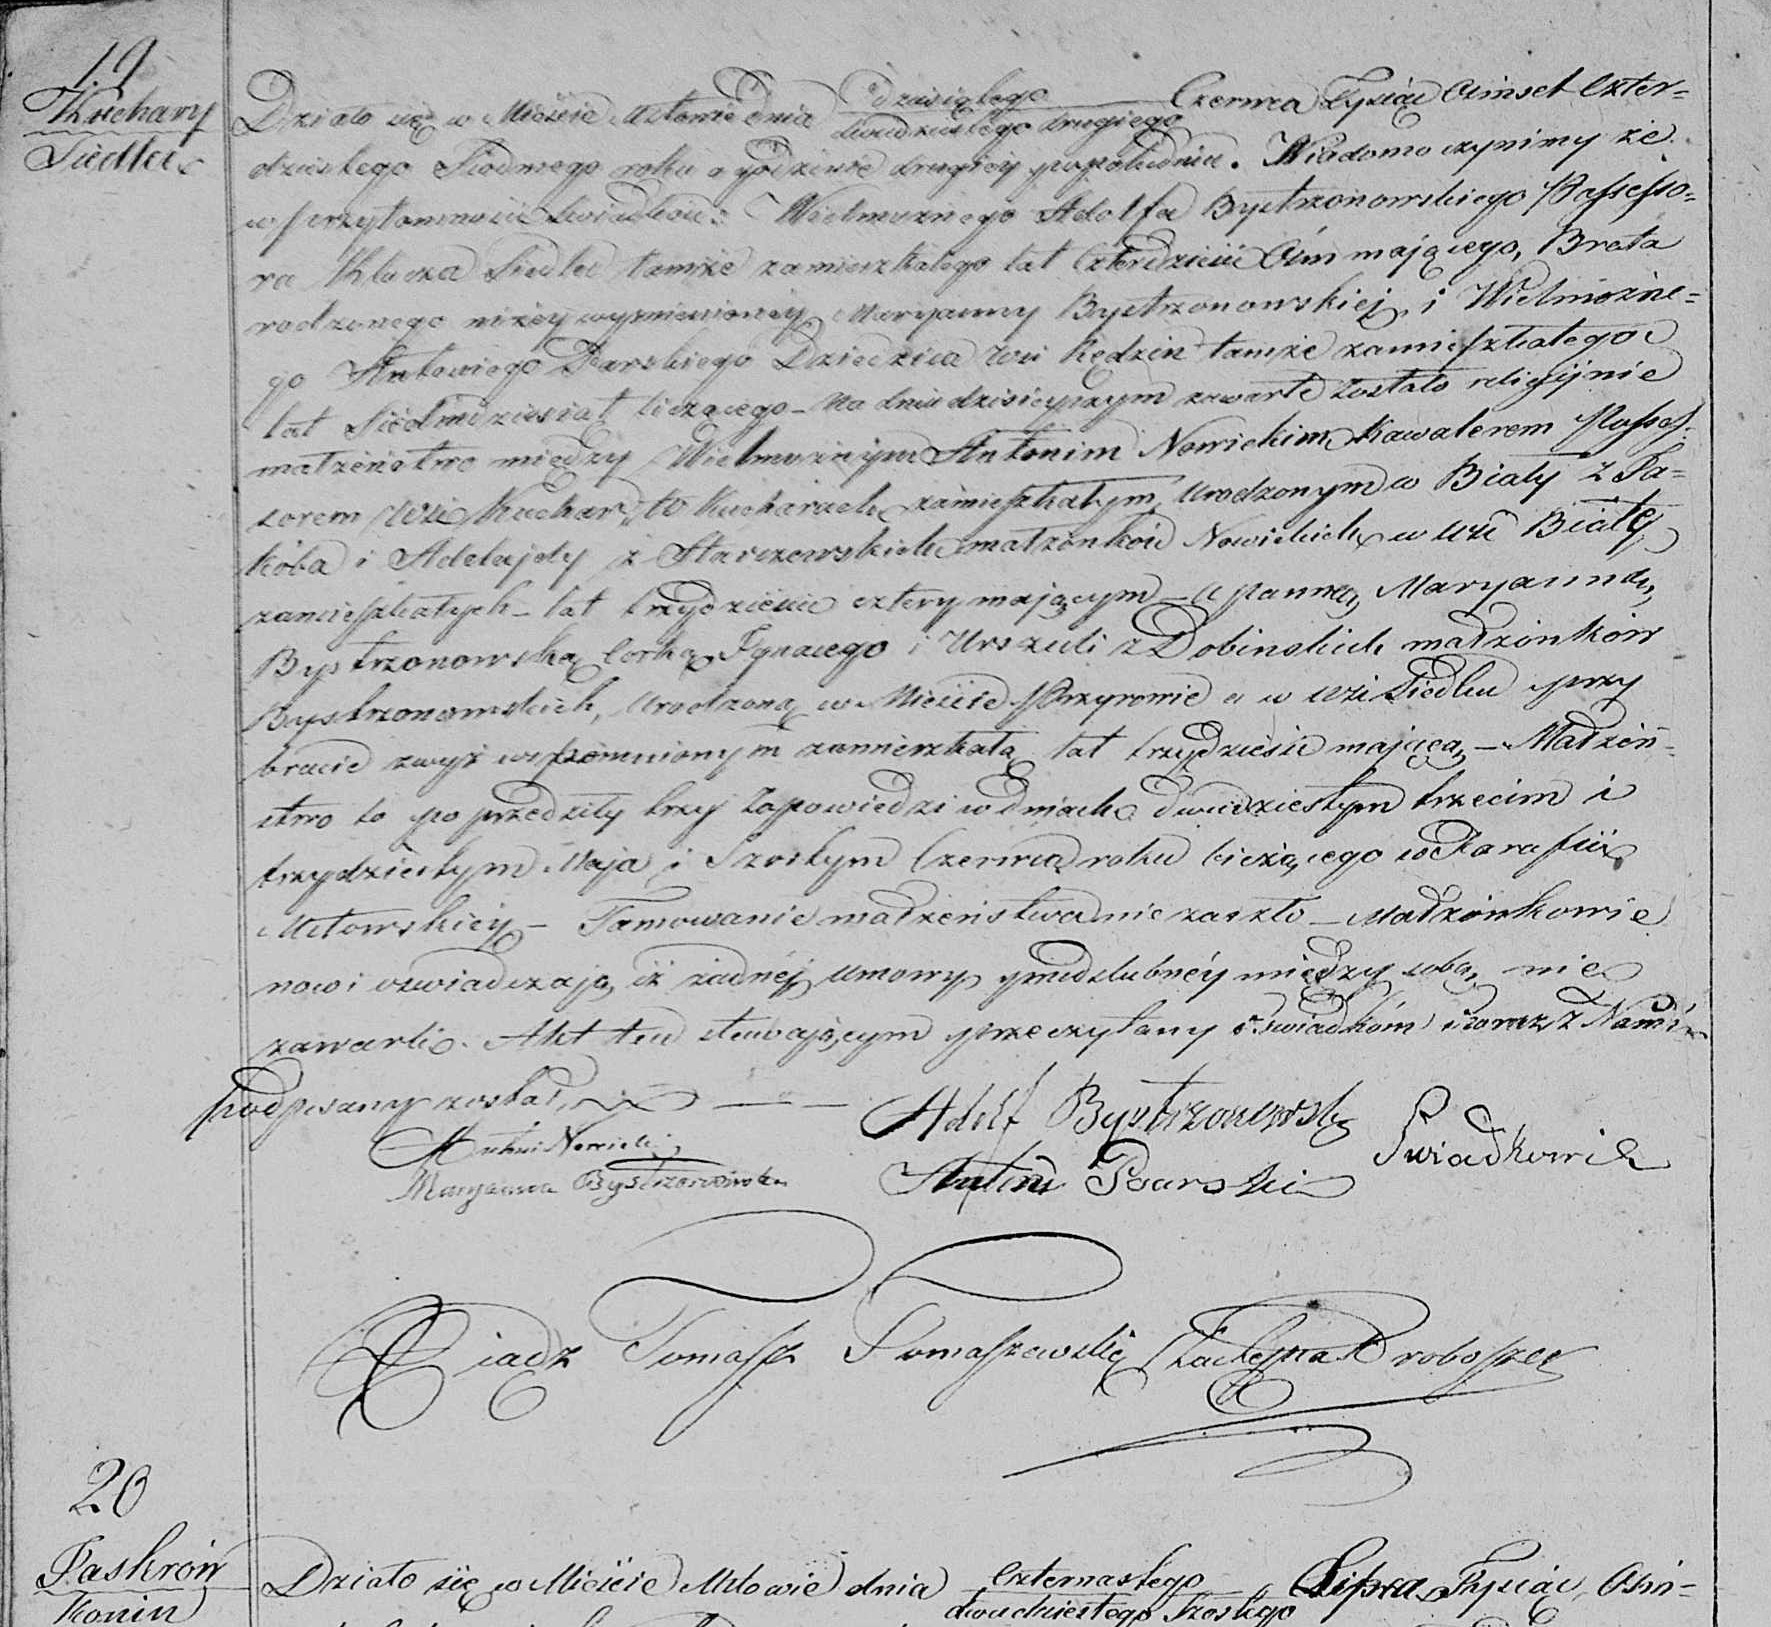 19
Kuchary
Siedlec
Działo się w Mieście Mstowie dnia dziesiątego
dwudziestego drugiego Czerwca Tysiąc Ośmset Czter-
dziestego Siódmego roku o godzinie drugiey popołudniu. Wiadomo czynimy że
w przytomności świadków: Wielmożnego Adolfa Bystrzonowskiego Possesso-
ra Klucza Siedlec tamże zamieszkałego lat Czterdzieści Ośm mającego, Brata
rodzonego niżey wymienioney Maryanny Bystrzonowskiej, i Wielmożne-
go Antoniego Psarskiego Dziedzica Wsi Kędzin tamże zamieszkałego
lat Siedmdziesiąt liczącego – Na dniu dzisieyszym zawarte zostało religijnie
małżeństwo między Wielmożnym Antonim Nowickim Kawalerem Posses-
sorem Wsi Kuchar, w Kucharach zamieszkałym, urodzonym w Biały z Ja-
kóba i Adelajdy z Starzewskich małżonków Nowickich w Wsi Biały
zamieszkałych – lat trzydzieści cztery mającym – a panną Maryanną
Bystrzonowską Corką Ignacego i Urszuli z Dobińskich małżonków
Bystrzonowskich, urodzoną w Mieście Przyrowie a w Wsi Siedlcu przy
bracie zwyż wspomnionym zamieszkałą, lat trzydzieści mającą, – Małżeń-
stwo to poprzedziły trzy Zapowiedzi w dniach dwudziestym trzecim i
trzydziestym Maja i Szostym Czerwca roku bieżącego w Parafii
Mstowskiéy – Tamowanie małżeństwa nie zaszło – Małżonkowie
nowi oświadczają, iż żadnéj umowy przedslubnéy między sobą nie
zawarli. Akt ten stawającym przeczytany i świadkom i wraz z Nami
podpisany został,
Adolf Bystrzonowski
Świadkowie
Antoni Nowicki
Maryanna Bystrzonowska
Antoni Psarski
Xiądz Tomasz Tomaszewski Proboszcz
20
Jaskrów
Konin
Działo się w Mieście Mstowie dnia czternastego
dwudziestego Szostego Lipca Tysiąc Ośm-